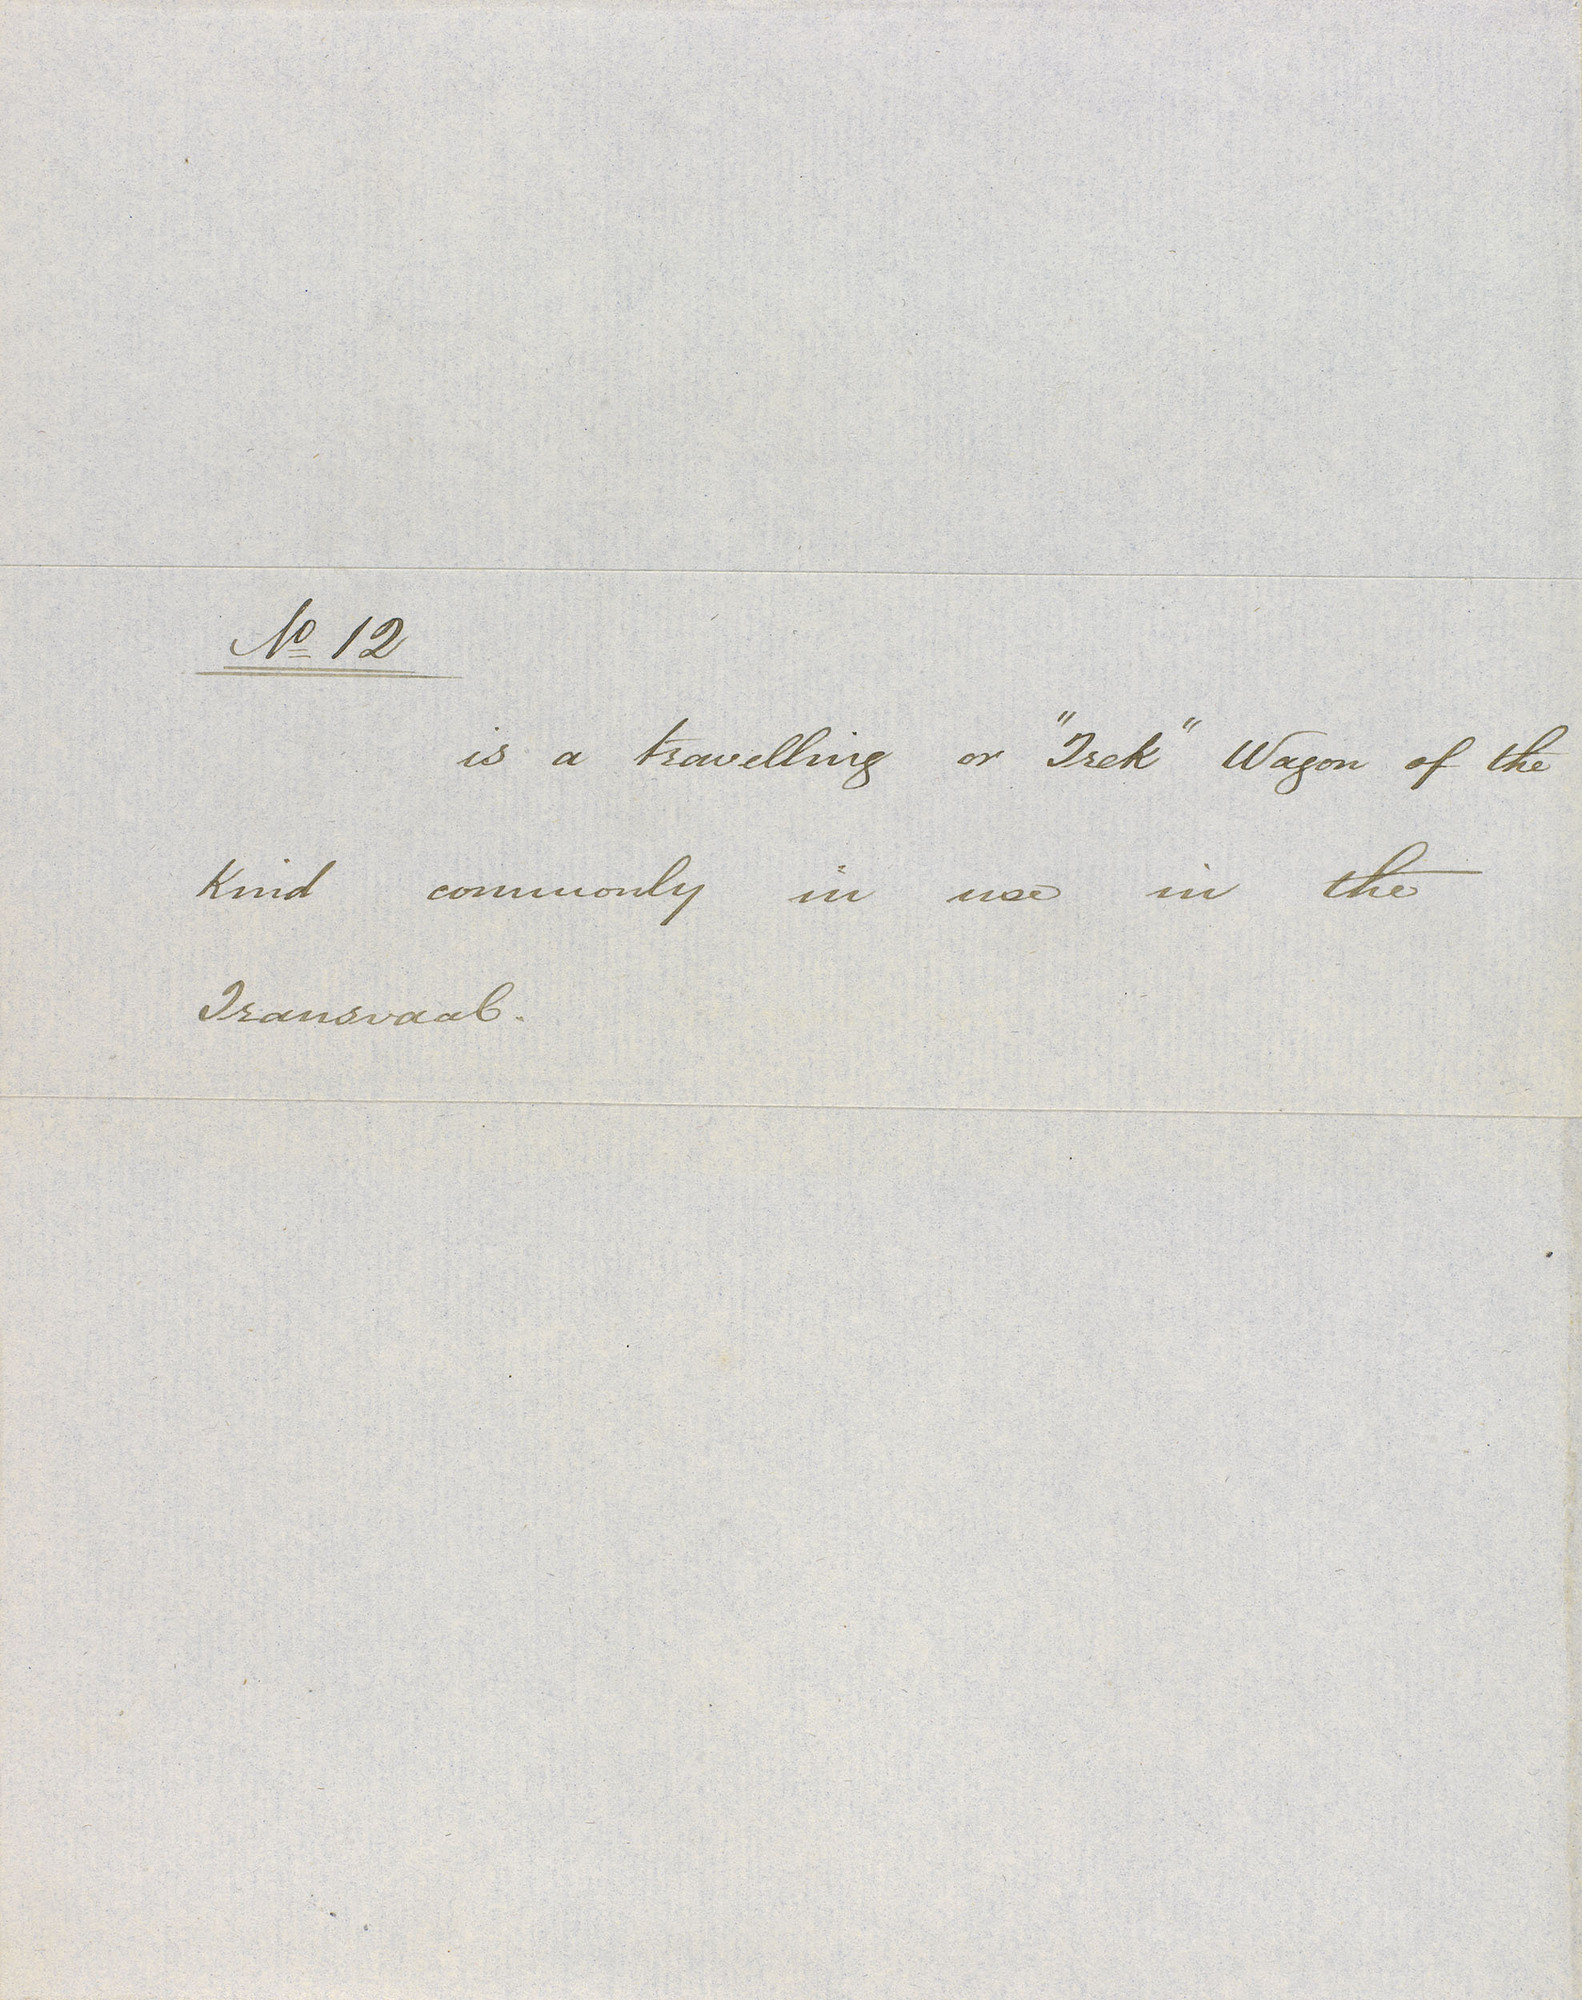 No 12
is a travelling or "Trek" Wagon of the
Kind commonly in use in the
Transvaal.